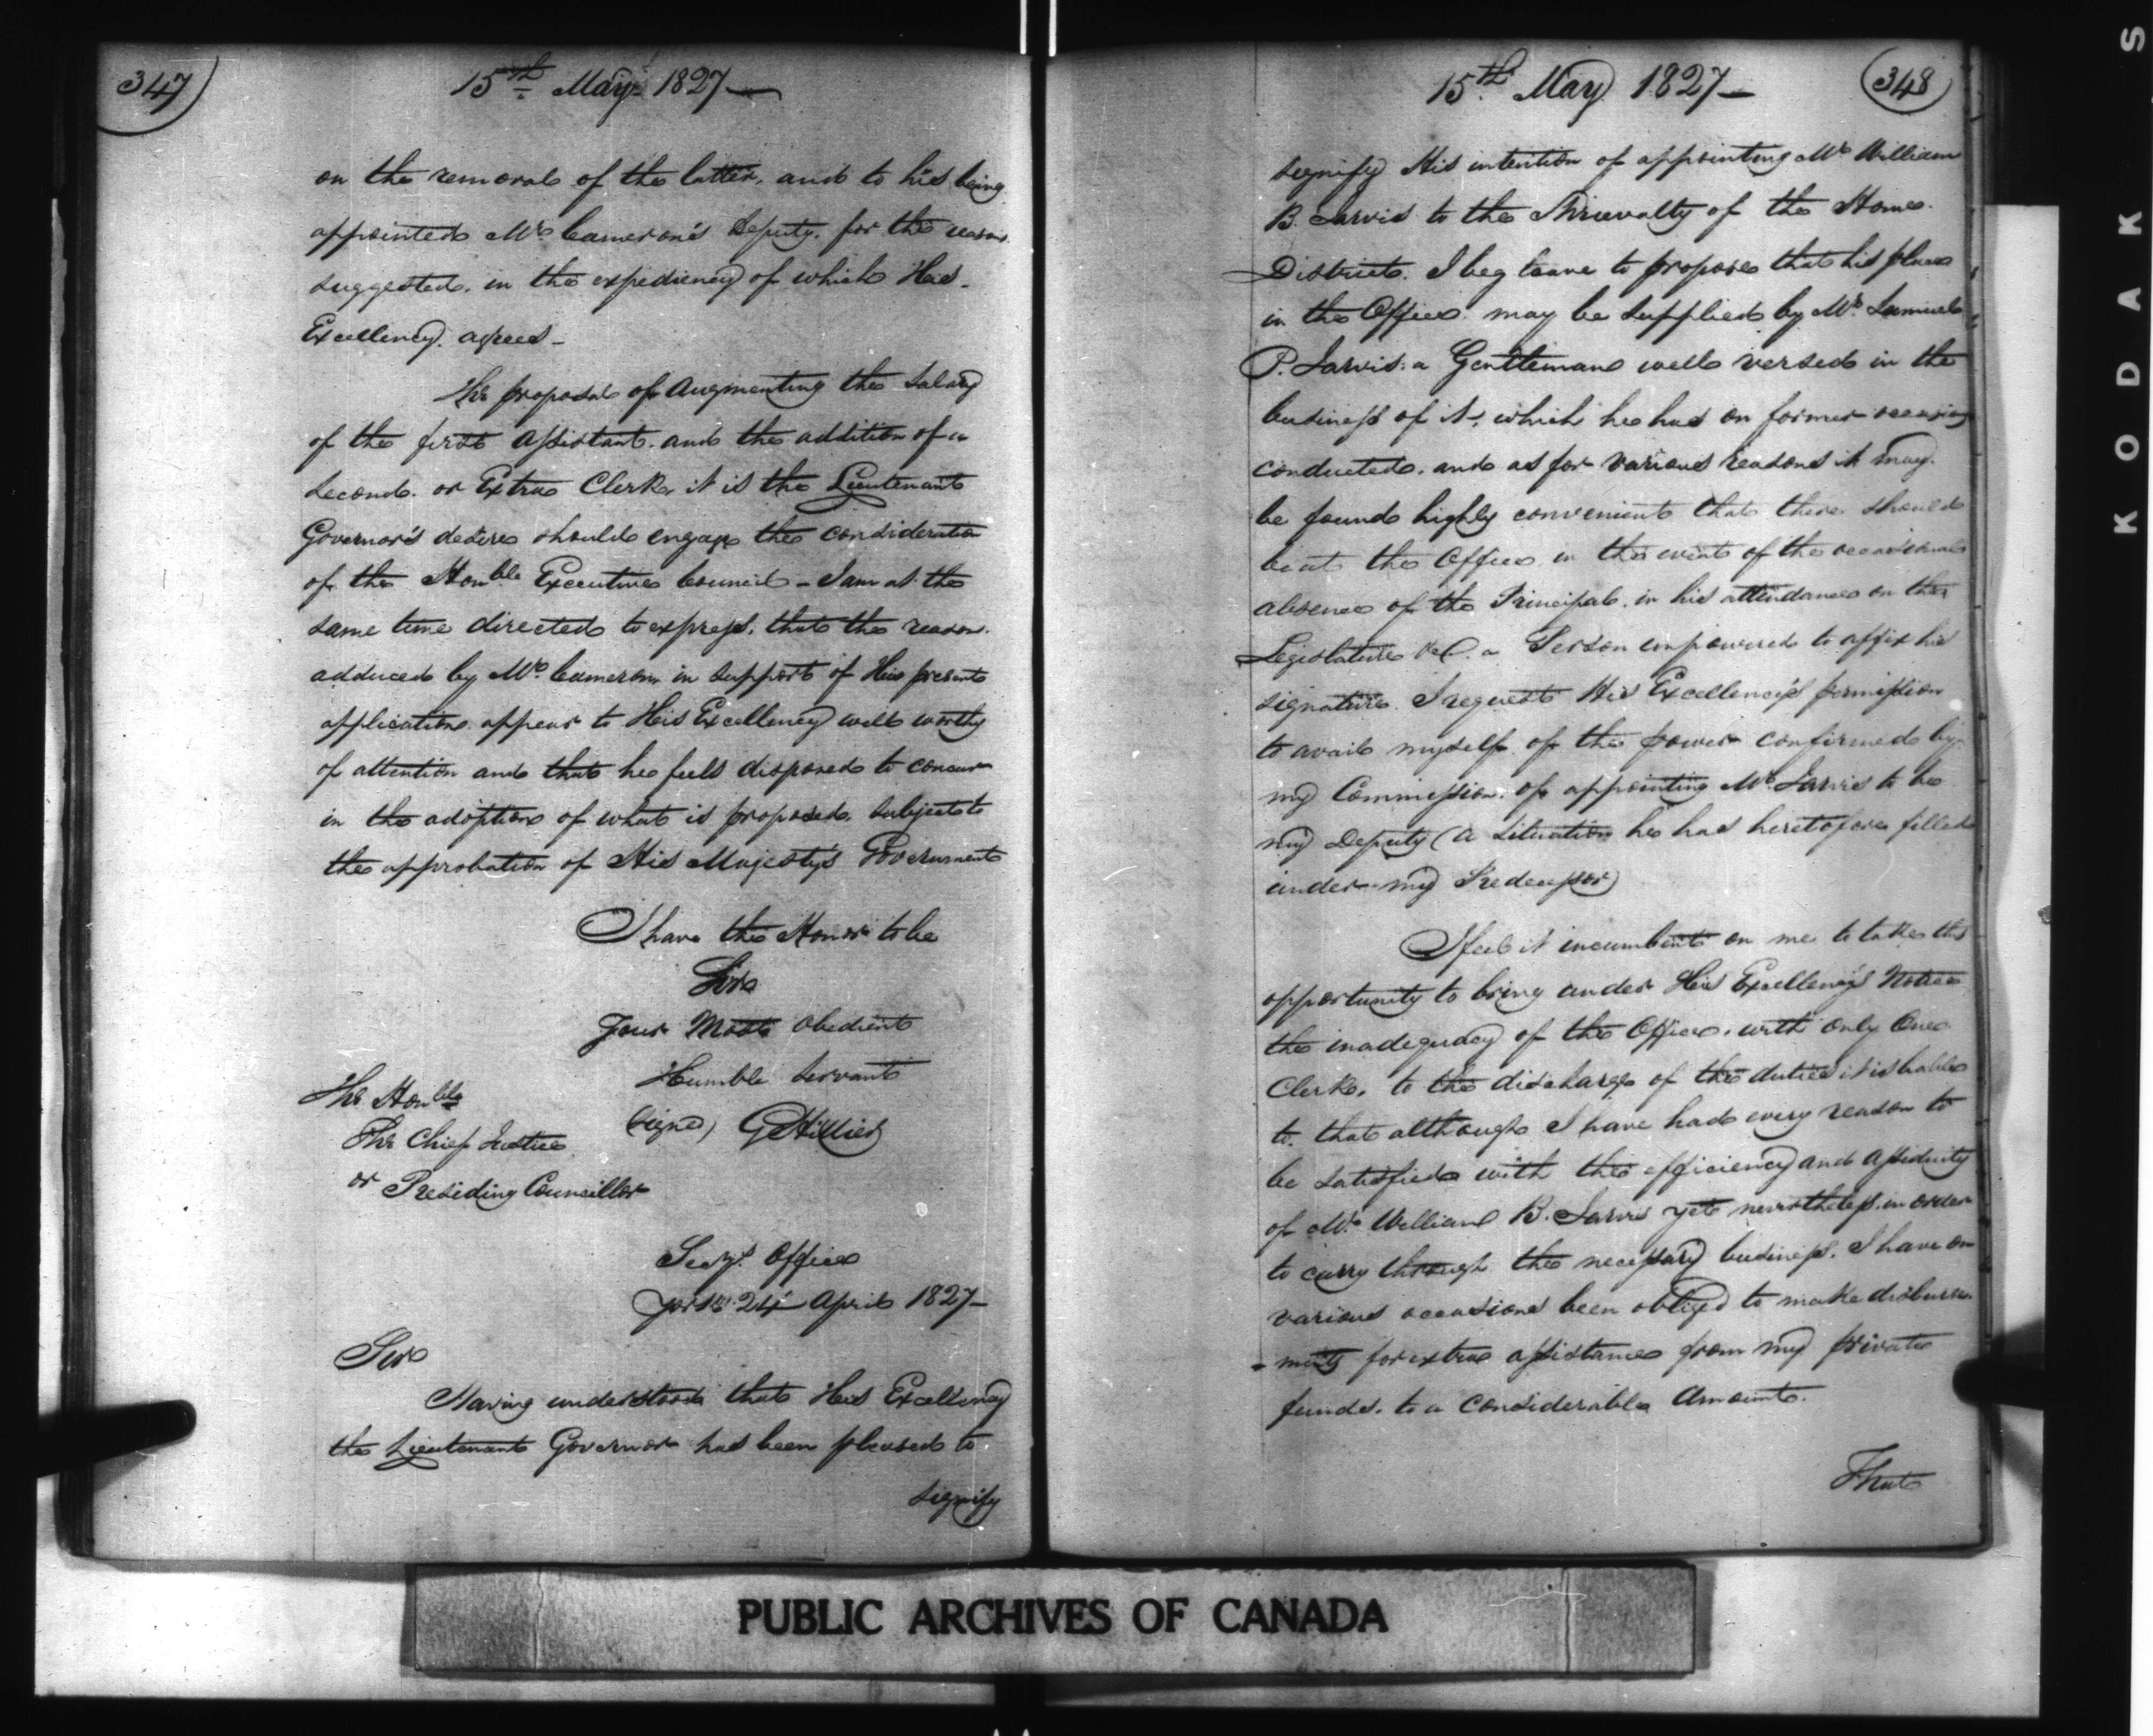 347
15th May 1827
on the removal of the latter, and to his being
appointed Mr Cameron's Deputy, for the reasons
suggested, in the expediency of which His
Excellency agrees
The proposal of augmenting the Salary
of the first Assistant, and the addition of a
second, or Extra Clerk, it is the Lieutenant
Governor's desire should engage the consideration
of the Honble Executive Council - I am at the
same time directed to express, that the reasons
adduced by Mr Cameron in support of His present
application, appear to His Excellency well worthy
of attention and that he feels disposed to concur
in the adoption of what is proposed, subject to
the approbation of His Majesty's Government
I have the Honor to be
Sir
Your Most Obedient
Humble Servant
(signed) G Hillier
The Honble
The Chief Justice
or Presiding Councillor
Secy's Office
York 24 April 1827
Sir
Having understood that His Excellency
the Lieutenant Governor has been pleased to
signify
15th May 1827
348
signify His intention of appointing Mr William
B. Jarvis to the Shrievalty of the Home
District. I beg leave to propose that his place
in the Office may be supplied by Mr Samuel
P. Jarvis a Gentleman well versed in the
business of it, which he has on former occasions
conducted, and as for various reasons it may
be found highly convenient that there should
be at the Office in the event of the occasional
absence of the Principal in his attendance on the
Legislature &c. a Person empowered to affix his
signature. I request His Excellency's permission
to avail myself of the power confirmed by
my Commission of appointing Mr Jarvis to be
my Deputy (a situation he has heretofore filled
under my Predecessor)
I feel it incumbent on me to take this
opportunity to bring under His Excellency's Notice
the inadequacy of the Office, with only One
Clerk, to the discharge of the duties it is liable
to, that although I have had every reason to
be satisfied with the efficiency and assiduity
of Mr William B. Jarvis yet nevertheless, in order
to carry through the necessary business, I have on
various occasions been obliged to make disburse
-ments for extra assistance from my private
funds, to a considerable Amount.
That
PUBLIC ARCHIVES OF CANADA
KODAK S